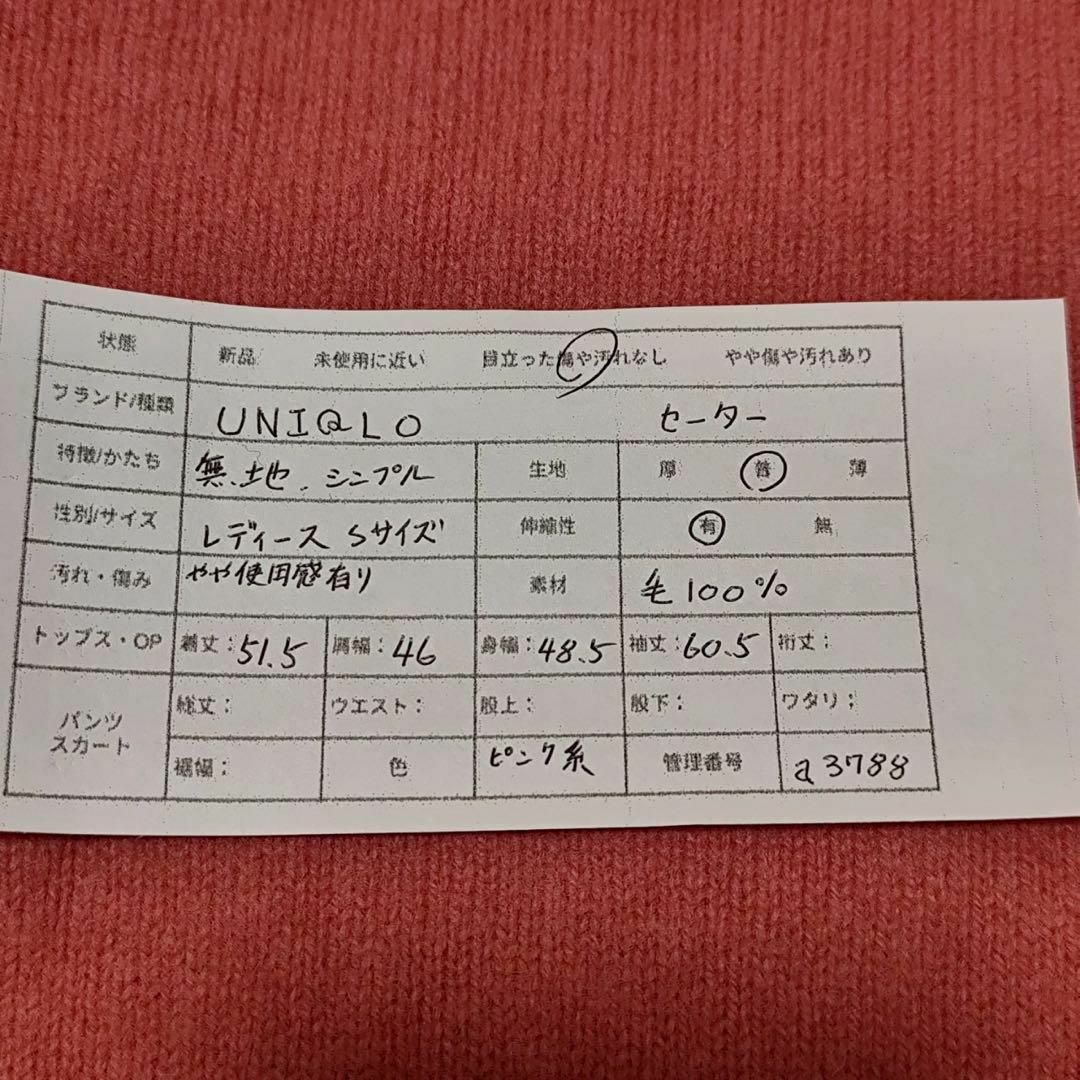 状態 新品 未使用に近い 目立った傷や汚れなし やや傷や汚れあり
ブランド/種類 UNIQLO セーター
特徴/かたち 無地、シンプル 生地 厚 普 薄
性別/サイズ レディース Sサイズ 伸縮性 有 無
汚れ・傷み やや使用感有り 素材 毛100%
トップス・OP 着丈：51.5 肩幅：46 身幅：48.5 袖丈：60.5 裄丈：
パンツ スカート 総丈： ウエスト： 股上： 股下： ワタリ；
裾幅： 色 ピンク系 管理番号 a3788